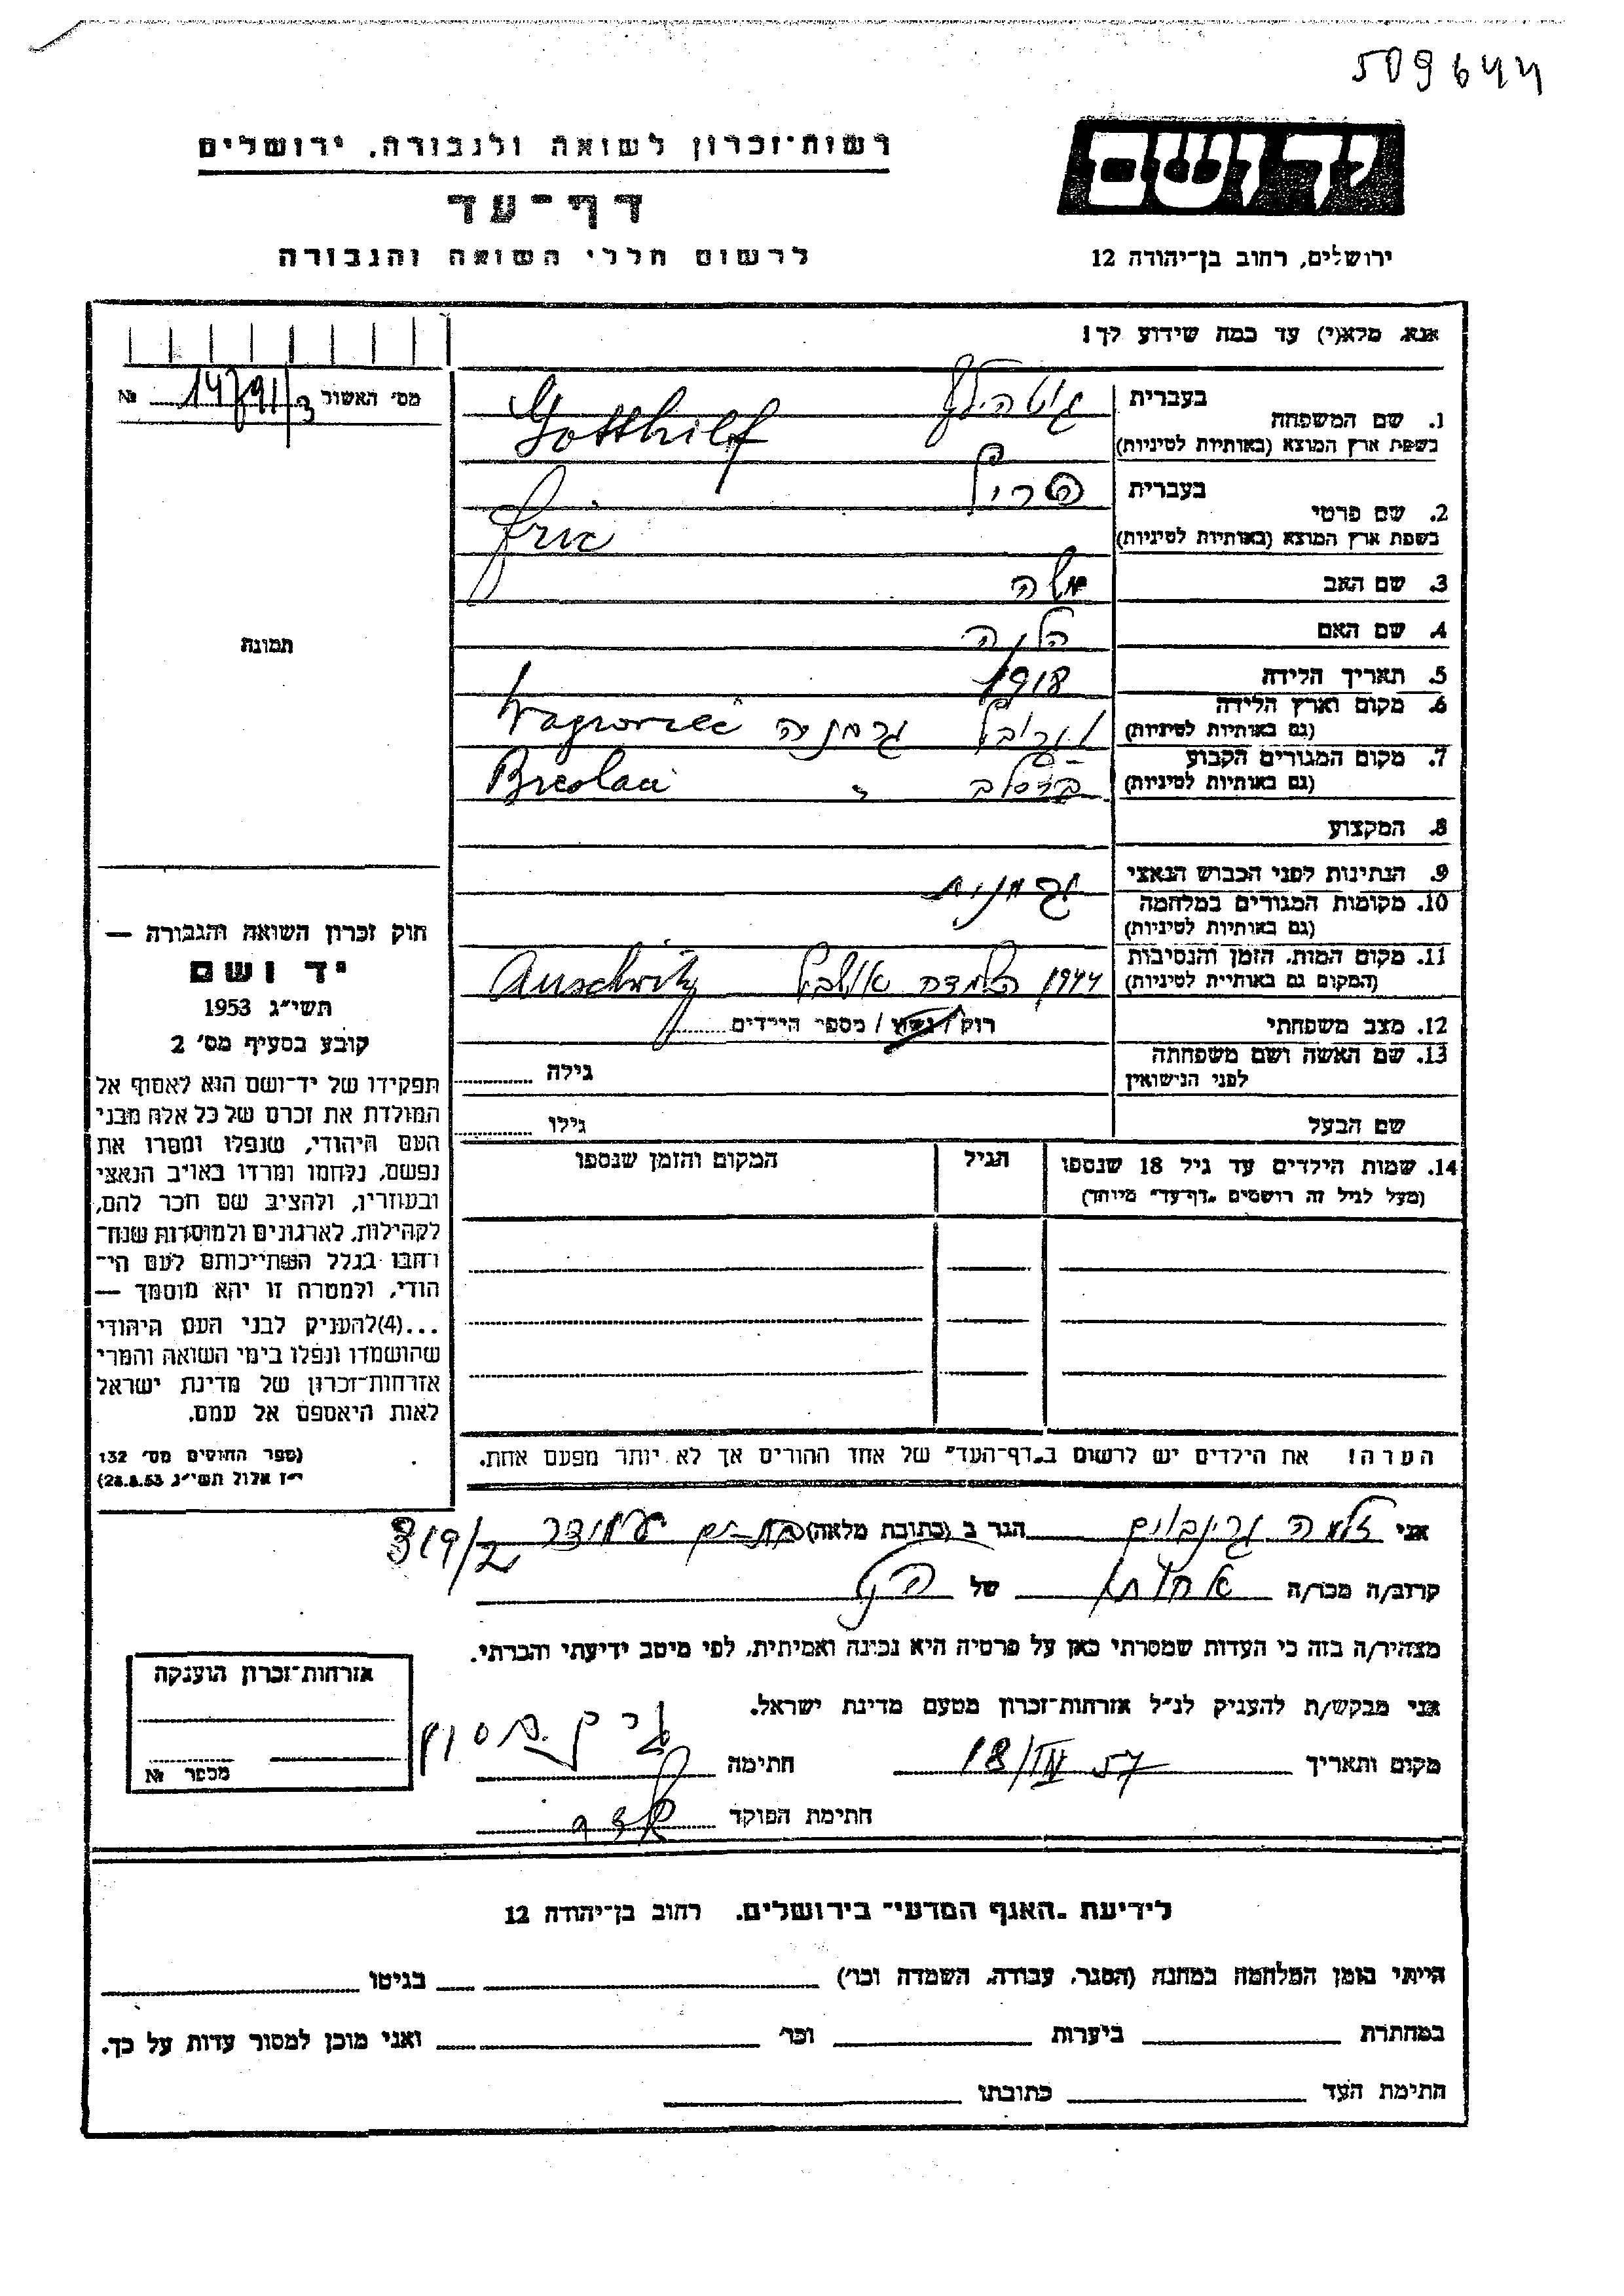 509644
רשות־זכרון לשואה ולגבורה. ירושלים
דף־עד
לרשום חללי השואה והגבורה
יד ושם
ירושלים, רחוב בן־יהודה 12
אנא מלא(י) עד כמה שידוע לך!
מס׳ האשור 14791/3 №
תמונה
1. שם המשפחה בעברית גוטהילף
בשפת ארץ המוצא (באותיות לטיניות) Gotthilf
2. שם פרטי בעברית
בשפת ארץ המוצא (באותיות לטיניות)
3. שם האב משה
4. שם האם הלנה
5. תאריך הלידה 1918
6. מקום וארץ הלידה גרמניה
(גם באותיות לטיניות)
7. מקום המגורים הקבוע ברסלב Breslau
(גם באותיות לטיניות)
8. המקצוע
9. הנתינות לפני הכבוש הנאצי גרמנית
10. מקומות המגורים במלחמה
(גם באותיות לטיניות)
11. מקום המות. הזמן והנסיבות 1944 הושמדה Auschwitz
(המקום גם באותיית לטיניות)
12. מצב משפחתי רוק / נשוי / מספר הילדים
13. שם האשה ושם משפחתה גילה
לפני הנישואין
שם הבעל גילו
14. שמות הילדים עד גיל 18 שנספו הגיל המקום והזמן שנספו
(מעל לגיל זה רושמים „דף־עד״ מיוחד)
הערה! את הילדים יש לרשום ב„דף־העד״ של אחד ההורים אך לא יותר מפעם אחת.
חוק זכרון השואה והגבורה —
יד ושם
תשי״ג 1953
קובע בסעיף מס׳ 2
תפקידו של יד־ושם הוא לאסוף אל
המולדת את זכרם של כל אלה מבני
העם היהודי, שנפלו ומסרו את
נפשם, נלחמו ומרדו באויב הנאצי
ובעוזריו, ולהציב שם וזכר להם,
לקהילות, לארגונים ולמוסדות שנח־
רחבו בגלל השתייכותם לעם הי־
הודי, ולמטרה זו יהא מוסמך —
...(4) להעניק לבני העם היהודי
שהושמדו ונפלו בימי השואה והמרי
אזרחות־זכרון של מדינת ישראל
לאות היאספם אל עמם.
(ספר החוקים מס׳ 132
י״ז אלול תשי״ג 28.8.53)
אני גרינבוים הגר ב (כתובת מלאה) בת-ים עמידר 319/2
קרוב/ה מכר/ה אחותו של הנ״ל
מצהיר/ה בזה כי העדות שמסרתי כאן על פרטיה היא נכונה ואמיתית, לפי מיטב ידיעתי והכרתי.
אני מבקש/ת להעניק לנ״ל אזרחות־זכרון מטעם מדינת ישראל.
מקום ותאריך 18/IV 57 חתימה
חתימת הפוקד
אזרחות־זכרון הוענקה
מספר №
לידיעת „האגף המדעי״ בירושלים. רחוב בן־יהודה 12
הייתי בזמן המלחמה במחנה (הסגר, עבודה, השמדה וכו׳) בגיטו
במחתרת ביערות וכו׳ ואני מוכן למסור עדות על כך.
חתימת העד כתובתו